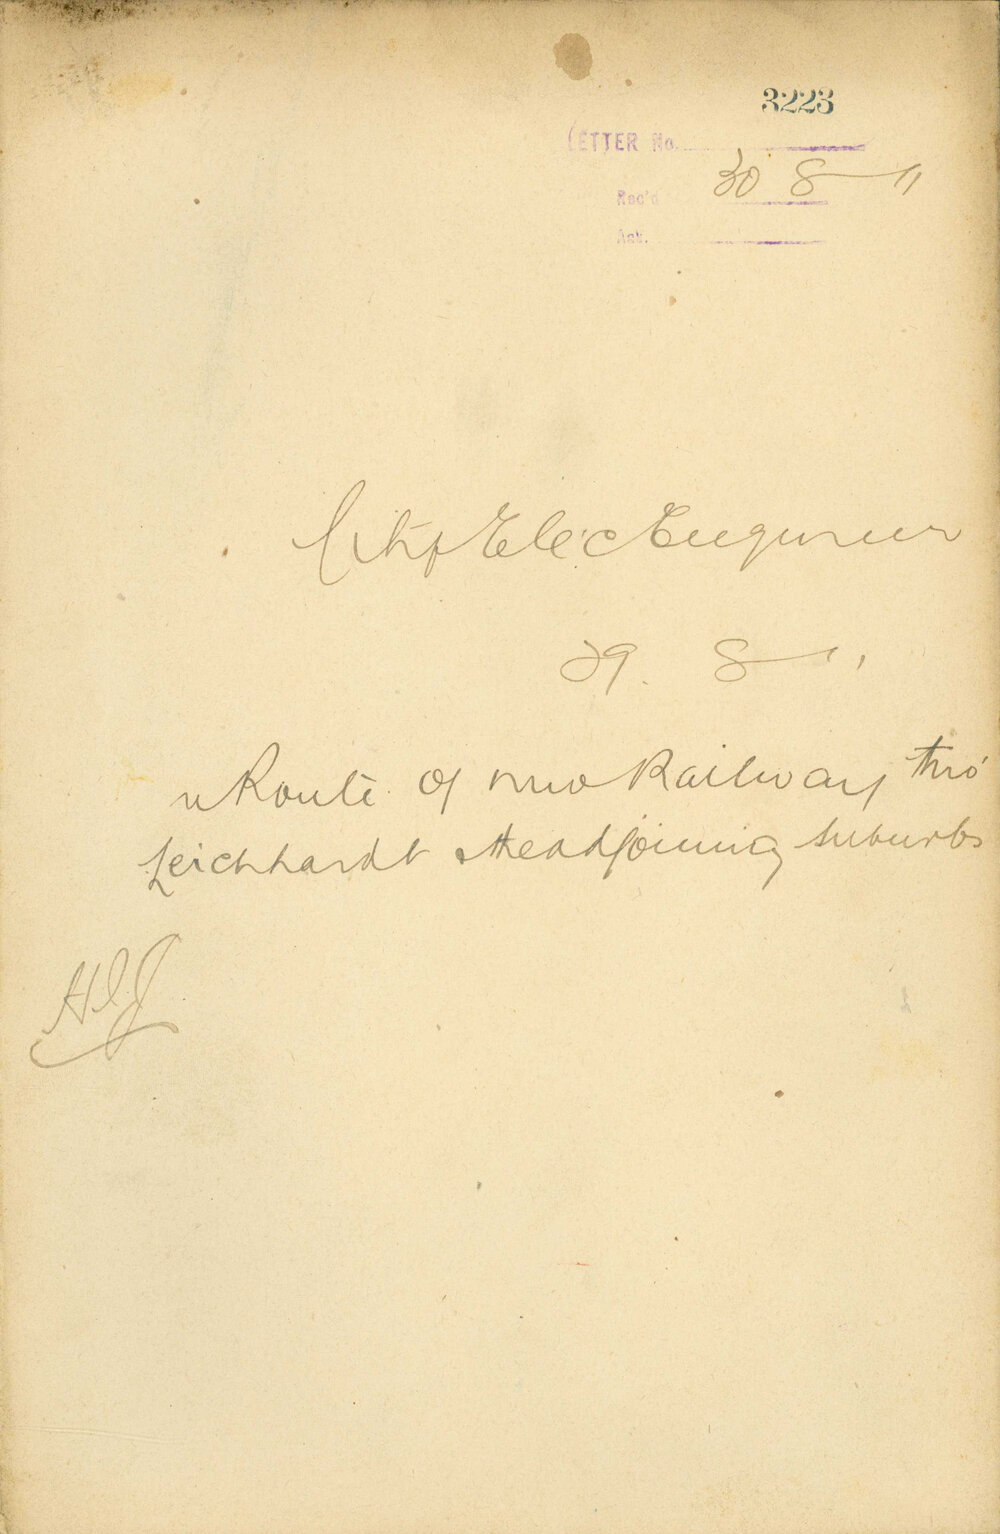 3223
LETTER No.
Rec'd 30 8 11
Ack.
City Elec Engineer
29. 8 11
Route of new Railway thro'
Leichhardt & the adjoining suburbs